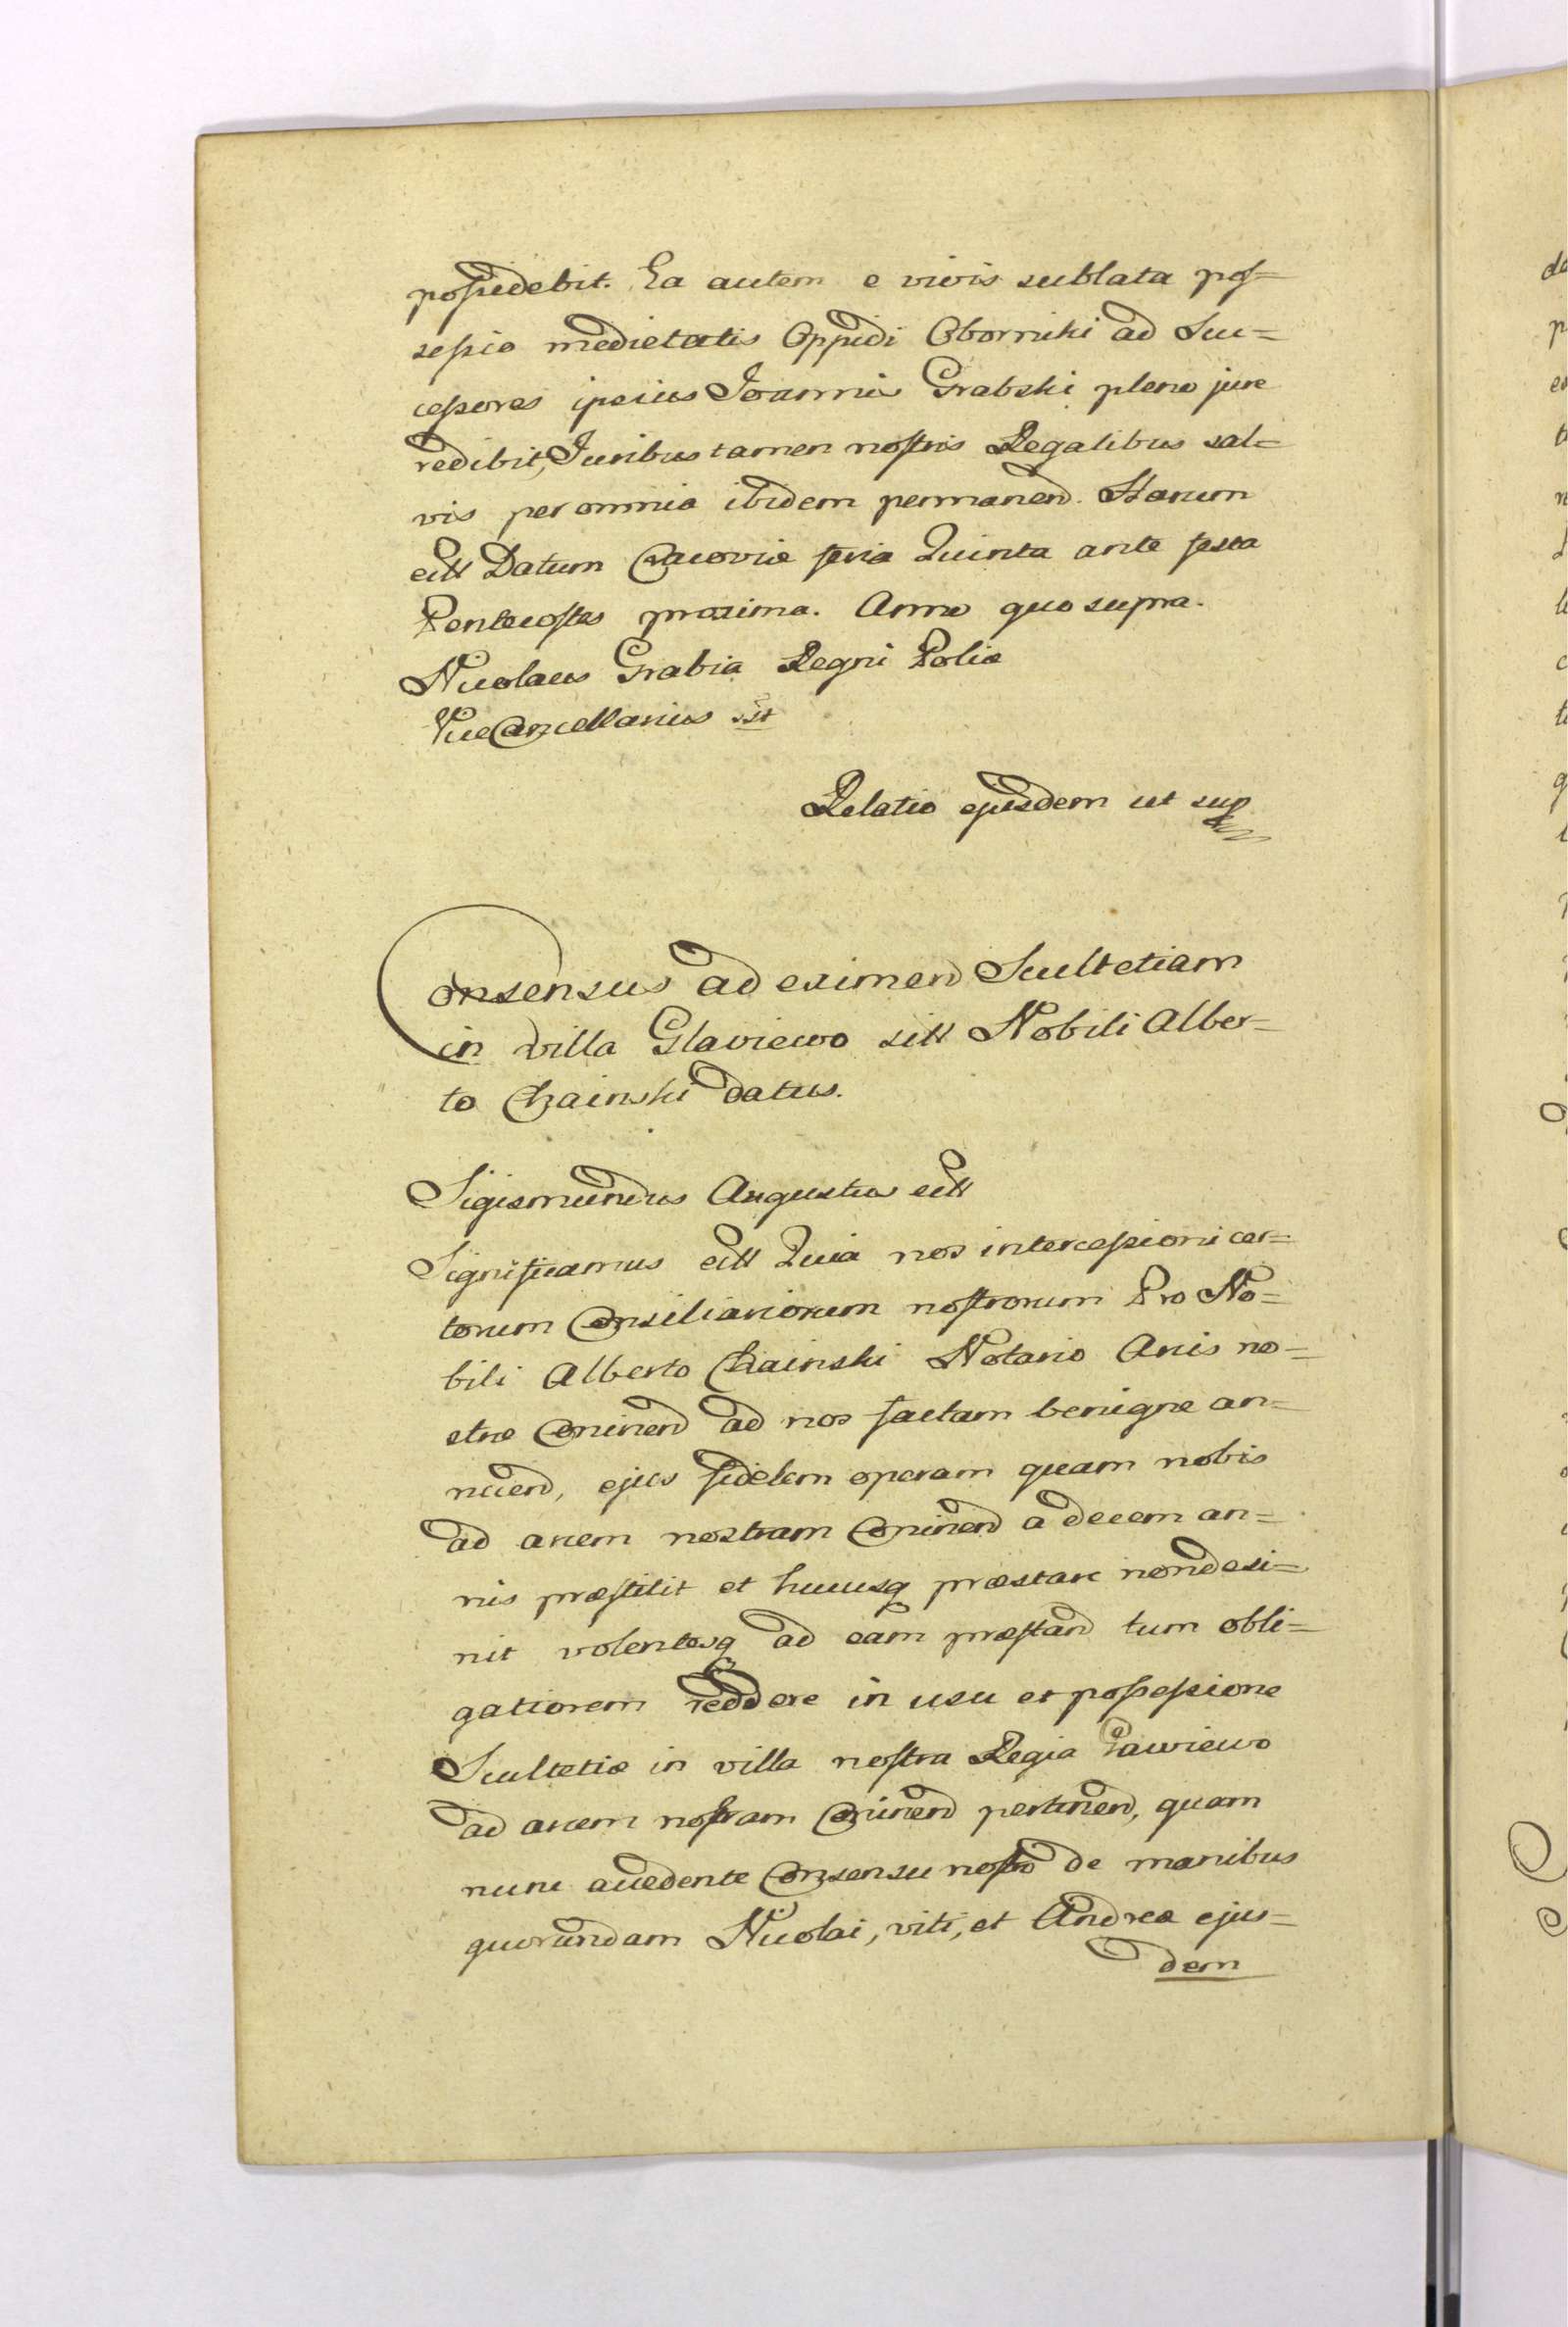 possidebit. Ea autem e vivis sublata pos=
sessio medietatis Oppidi Oborniki ad Suc=
cessores ipsius Joannis Grabski pleno jure
redibit, Juribus tamen nostris Regalibus sal=
vis per omnia ibidem permanend. Harum
ett Datum Cracoviæ feria Quinta ante festa
Pentecostes proxima. Anno quo supra.
Nicolaus Grabia Regni Poliæ
ViceCancellarius sst
Relatio ejusdem ut sup
Consensus ad eximend Scultetiam
in villa Glaviewo sitt Nobili Alber=
to Czainski datus.
Sigismundus Augustus ett
Significamus ett Quia nos intercessioni cer=
torum Consiliariorum nostrorum Pro No=
bili Alberto Czainski Notario Arcis no=
stræ Coninen ad nos factam benigne an=
nuend, ejus fidelem operam quam nobis
ad arcem nostram Coninen a decem an=
nis præstitit et hucusq præstare non desi=
nit volentesq ad eam præstand tum obli=
gatiorem reddere in usu et possessione
Scultetiæ in villa nostra Regia Gawiewo
ad arcem nostram Coninen pertinen, quam
nunc accedente Consensu nostro de manibus
quorundam Nicolai, viti, et Andreæ ejus=
dem